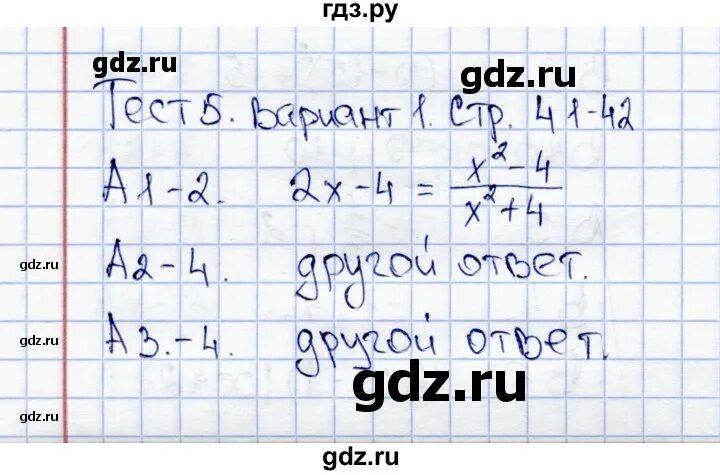 гдз.ру
gdz.ru gdz.ru
Тест 5. Вариант 1. Стр. 41-42
А1-2. 2x-4 = (x²-4)/(x²+4)
gdz.ru
gdz.ru А2-4. другой ответ. gdz.ru
gdz.ru А3.-4. другой ответ. gdz.ru
gdz.ru
gdz.ru gdz.ru
gdz.ru